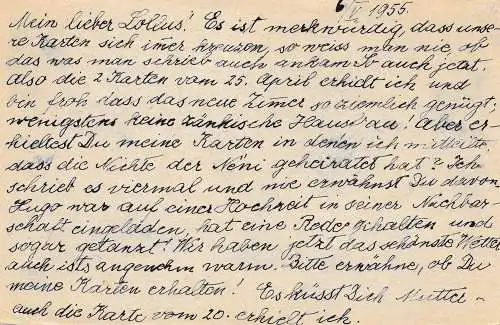 6/V 1955.
Mein lieber Loldus! Es ist merkwürdig, dass unse-
re Karten sich imer kreuzen, so weiss man nie, ob
das was man schrieb auch ankam. So auch jetzt,
also die 2 Karten vom 25. April erhielt ich und
bin froh dass das neue Zimer so ziemlich genügt,
wenigstens keine zänkische Hausfrau! Aber er-
hieltest Du meine Karten in denen ich mitteilte
dass die Nichte der Néni geheiratet hat? Ich
schrieb es viermal und nie erwähnst Du davon,
Hugo war auf einer Hochzeit in seiner Nachbar-
schaft eingeladen, hat eine Rede gehalten und
sogar getanzt! Wir haben jetzt das schönste Wetter
auch ists angenehm warm. Bitte erwähne, ob Du
meine Karten erhalten! Es küsst Dich Mutter
auch die Karte vom 20. erhielt ich.